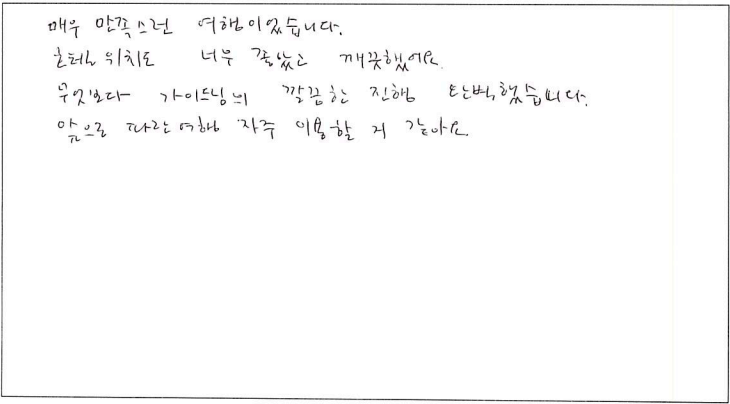 매우 만족스런 여행이었습니다.
호텔 위치도 너무 좋았고 깨끗했어요.
무엇보다 가이드님의 깔끔한 진행 탄벽했습니다.
앞으로 따란여행 자주 이용할 거 같아요